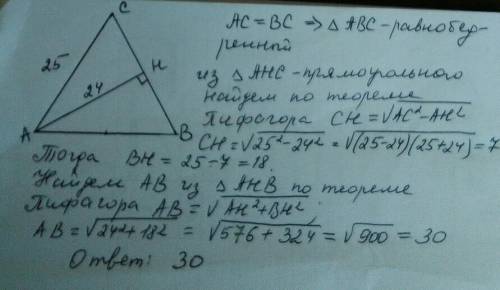 C
AC = BC ⇒ △ABC - равнобед-
ренный
25
H
24
A
B
из △AHC - прямоугольного
найдем по теореме
Пифагора CH = √AC² - AH²
CH = √25² - 24² = √(25-24)(25+24) = 7
Тогда BH = 25 - 7 = 18.
Найдем AB из △AHB по теореме
Пифагора AB = √AH² + BH²
AB = √24² + 18² = √576 + 324 = √900 = 30
Ответ: 30